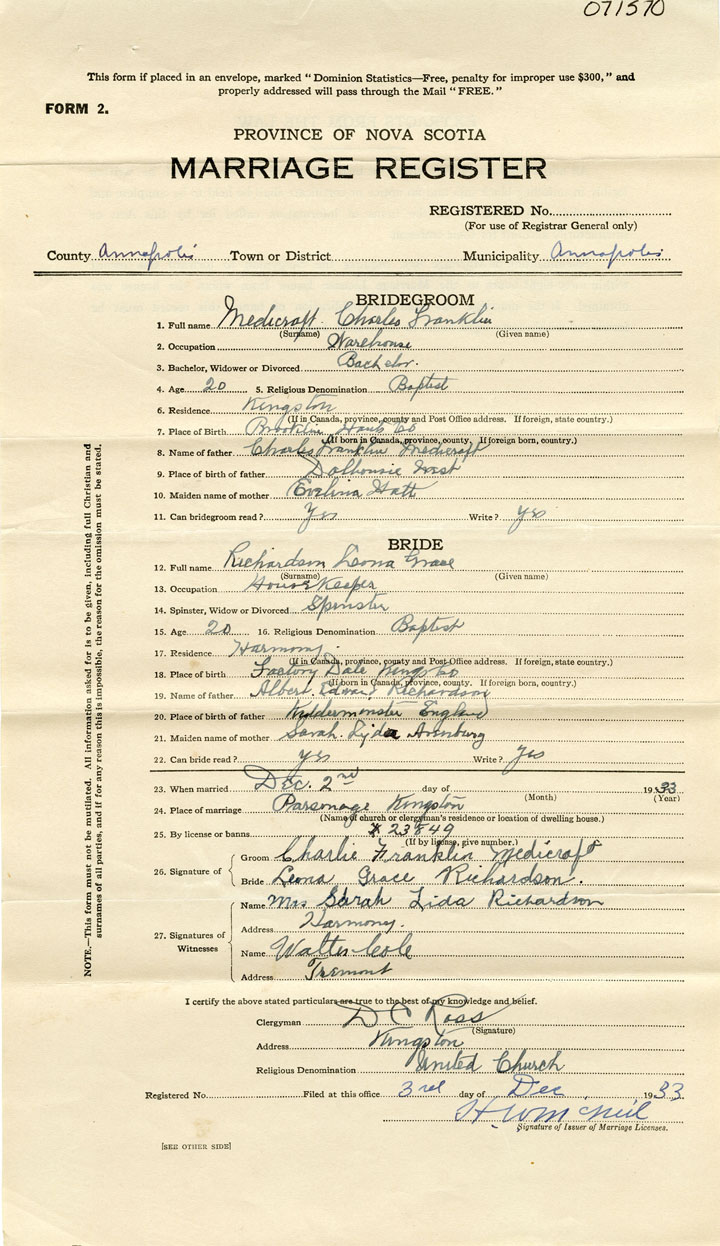 071570
This form if placed in an envelope, marked "Dominion Statistics—Free, penalty for improper use $300," and
properly addressed will pass through the Mail "FREE."
FORM 2.
PROVINCE OF NOVA SCOTIA
MARRIAGE REGISTER
REGISTERED No.
(For use of Registrar General only)
County Annapolis Town or District Municipality Annapolis
BRIDEGROOM
1. Full name Medicraft Charles Franklin
(Surname) (Given name)
2. Occupation Warehouse
3. Bachelor, Widower or Divorced Bachelor.
4. Age 20 5. Religious Denomination Baptist
6. Residence Kingston
(If in Canada, province, county and Post Office address. If foreign, state country.)
7. Place of Birth Brooklin Hants Co
(If born in Canada, province, county. If foreign born, country.)
8. Name of father Charles Franklin Medicraft
9. Place of birth of father Dalhousie West
10. Maiden name of mother Evelina Hatt
11. Can bridegroom read? Yes Write? Yes
BRIDE
12. Full name Richardson Leona Grace
(Surname) (Given name)
13. Occupation House Keeper
14. Spinster, Widow or Divorced Spinster
15. Age 20 16. Religious Denomination Baptist
17. Residence Harmony.
(If in Canada, province, county and Post Office address. If foreign, state country.)
18. Place of birth Factory Dale Kings Co
(If born in Canada, province, county. If foreign born, country.)
19. Name of father Albert Edward Richardson
20. Place of birth of father Kiddermonster England
21. Maiden name of mother Sarah Lyda Arenburg
22. Can bride read? Yes Write? Yes
23. When married Dec. 2nd day of 1933
(Month) (Year)
24. Place of marriage Parsonage Kingston
(Name of church or clergyman's residence or location of dwelling house.)
25. By license or banns 23849
(If by license, give number.)
26. Signature of
Groom Charlie Franklin Medicraft
Bride Leona Grace Richardson.
27. Signatures of Witnesses
Name Mrs Sarah Lida Richardson
Address Harmony.
Name Walter Cole
Address Tremont
I certify the above stated particulars are true to the best of my knowledge and belief.
Clergyman D C Ross
(Signature)
Address Kingston
Religious Denomination United Church
Registered No. Filed at this office 3rd day of Dec 1933
H. W McNeil
Signature of Issuer of Marriage Licenses.
[SEE OTHER SIDE]
NOTE.—This form must not be mutilated. All information asked for is to be given, including full Christian and
surnames of all parties, and if for any reason this is impossible, the reason for the omission must be stated.